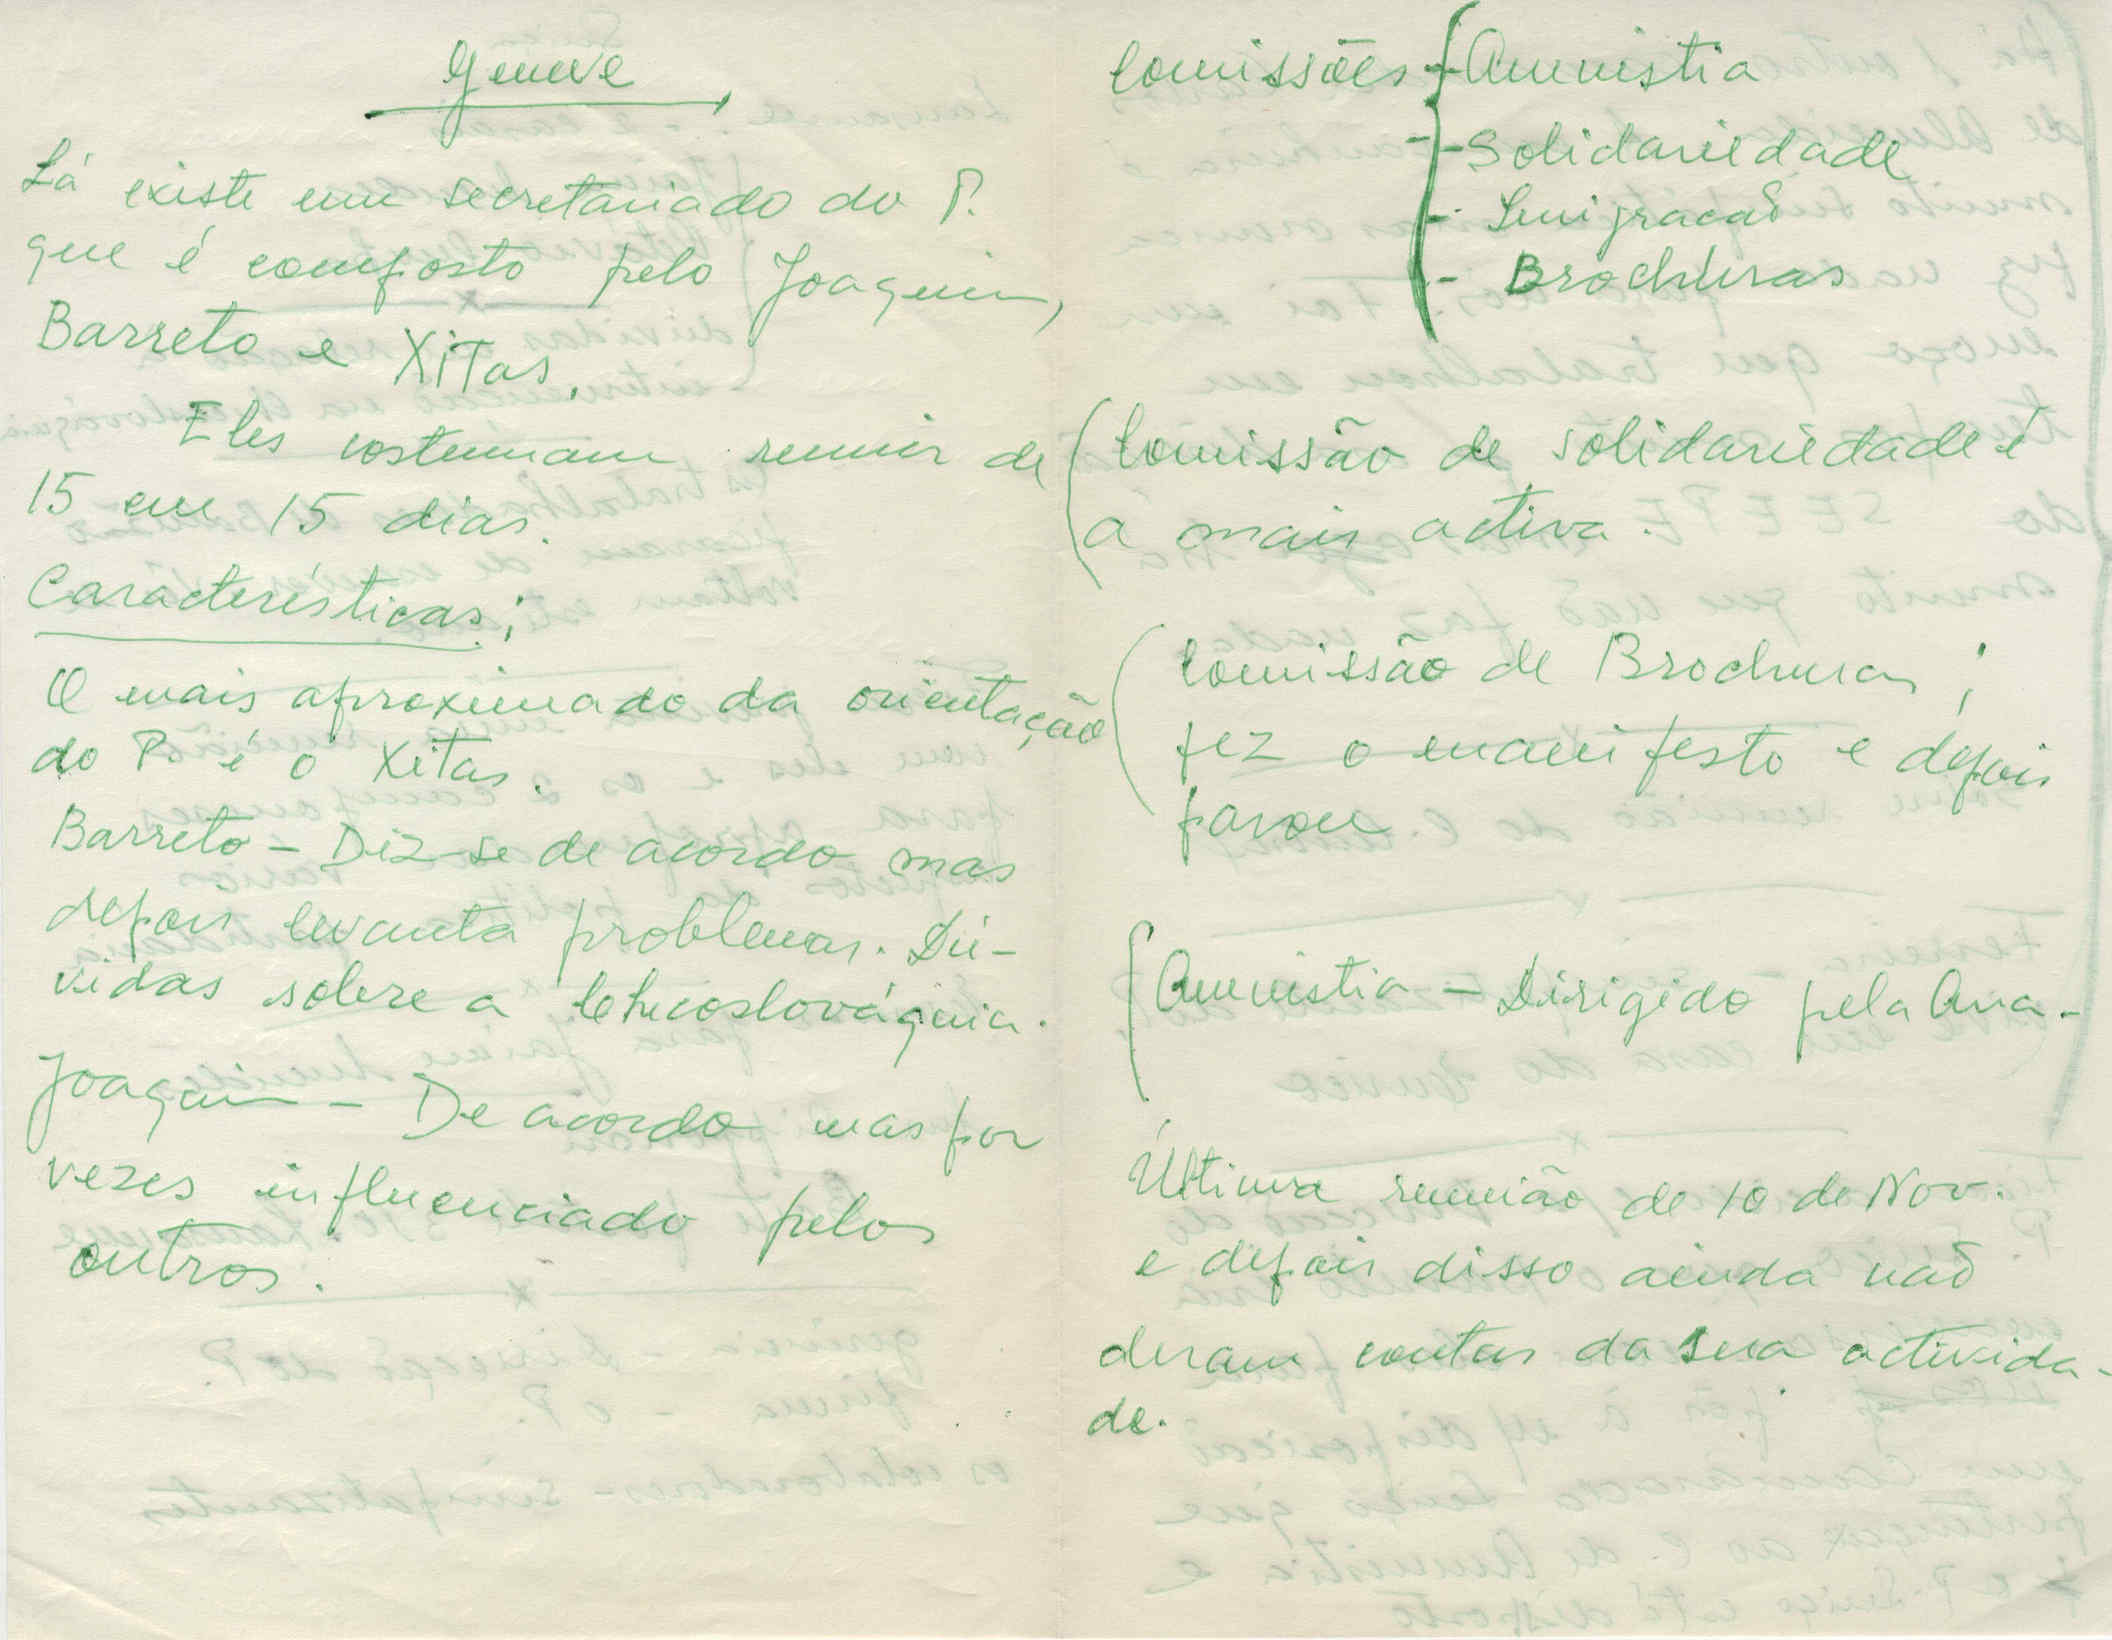 Geneve
Lá existe um secretariado do P.
que é composto pelo Joaquim,
Barreto e Xitas.
Eles costumam reunir de
15 em 15 dias.
Características:
O mais aproximado da orientação
do P. é o Xitas.
Barreto - Diz-se de acordo mas
depois levanta problemas. Dú-
vidas sobre a Tchecoslováquia.
Joaquim - De acordo mas por
vezes influenciado pelos
outros.
Comissões - Amnistia
- Solidariedade
- Emigração
- Brochuras
Comissão de solidariedade é
a mais activa.
Comissão de Brochuras;
fez o manifesto e depois
parou
Amnistia - Dirigido pela Ana.
Última reunião de 10 de Nov.
e depois disso ainda não
deram contas da sua activida-
de.